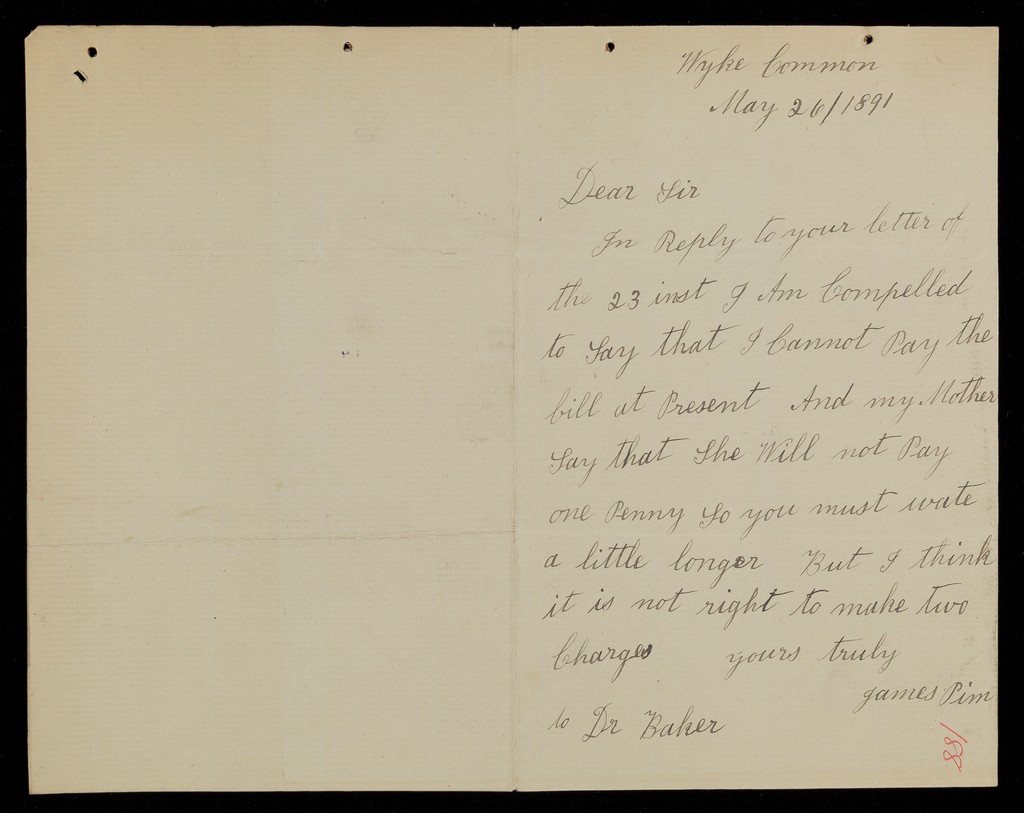 Wyke Common
May 26/1891
Dear Sir
In Reply to your letter of
the 23 inst I Am Compelled
to Say that I Cannot Pay the
bill at Present And my Mother
Say that She Will not Pay
one Penny So you must wate
a little longer But I think
it is not right to make two
Charges yours truly
James Pim
to Dr Baker